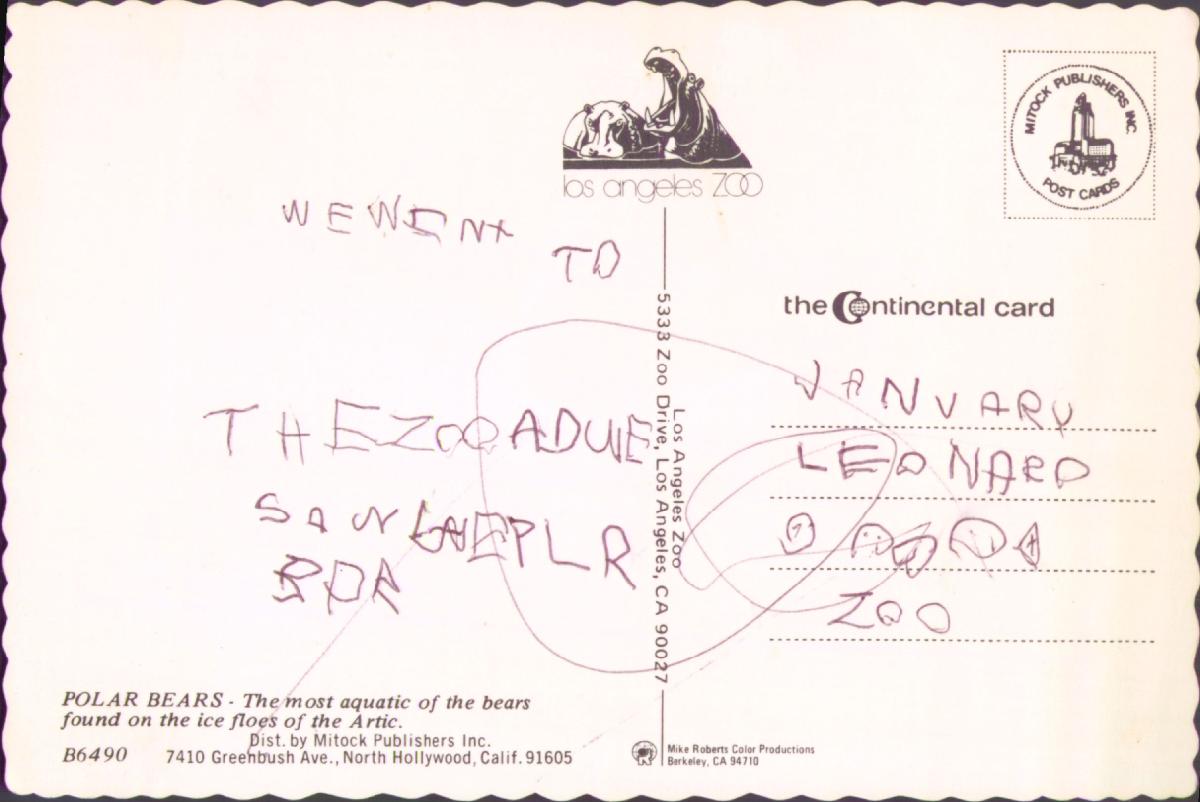 los angeles ZOO
MITOCK PUBLISHERS INC.
POST CARDS
WE WENT
TO
THE ZOO ADWE
SAW THE PLR
BDR
5333 Zoo Drive, Los Angeles, CA 90027
Los Angeles Zoo
the Continental card
JANUARY
LEONARD
ZOO
POLAR BEARS - The most aquatic of the bears
found on the ice floes of the Artic.
Dist. by Mitock Publishers Inc.
B6490 7410 Greenbush Ave., North Hollywood, Calif. 91605
Mike Roberts Color Productions
Berkeley, CA 94710